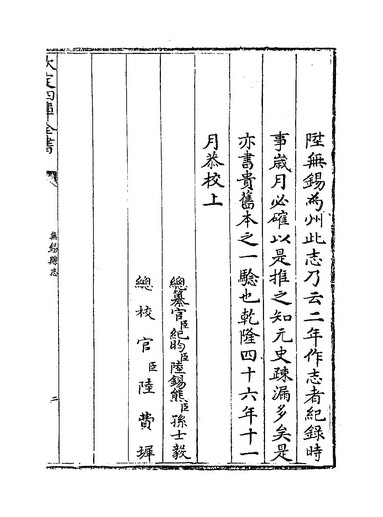 陞無錫為州此志乃云二年作志者紀錄時
事歲月必確以是推之知元史疎漏多矣是
亦書貴舊本之一驗也乾隆四十六年十一
月恭校上
總纂官臣紀昀臣陸錫熊臣孫士毅
總校官臣陸費墀
欽定四庫全書
無錫縣志
二